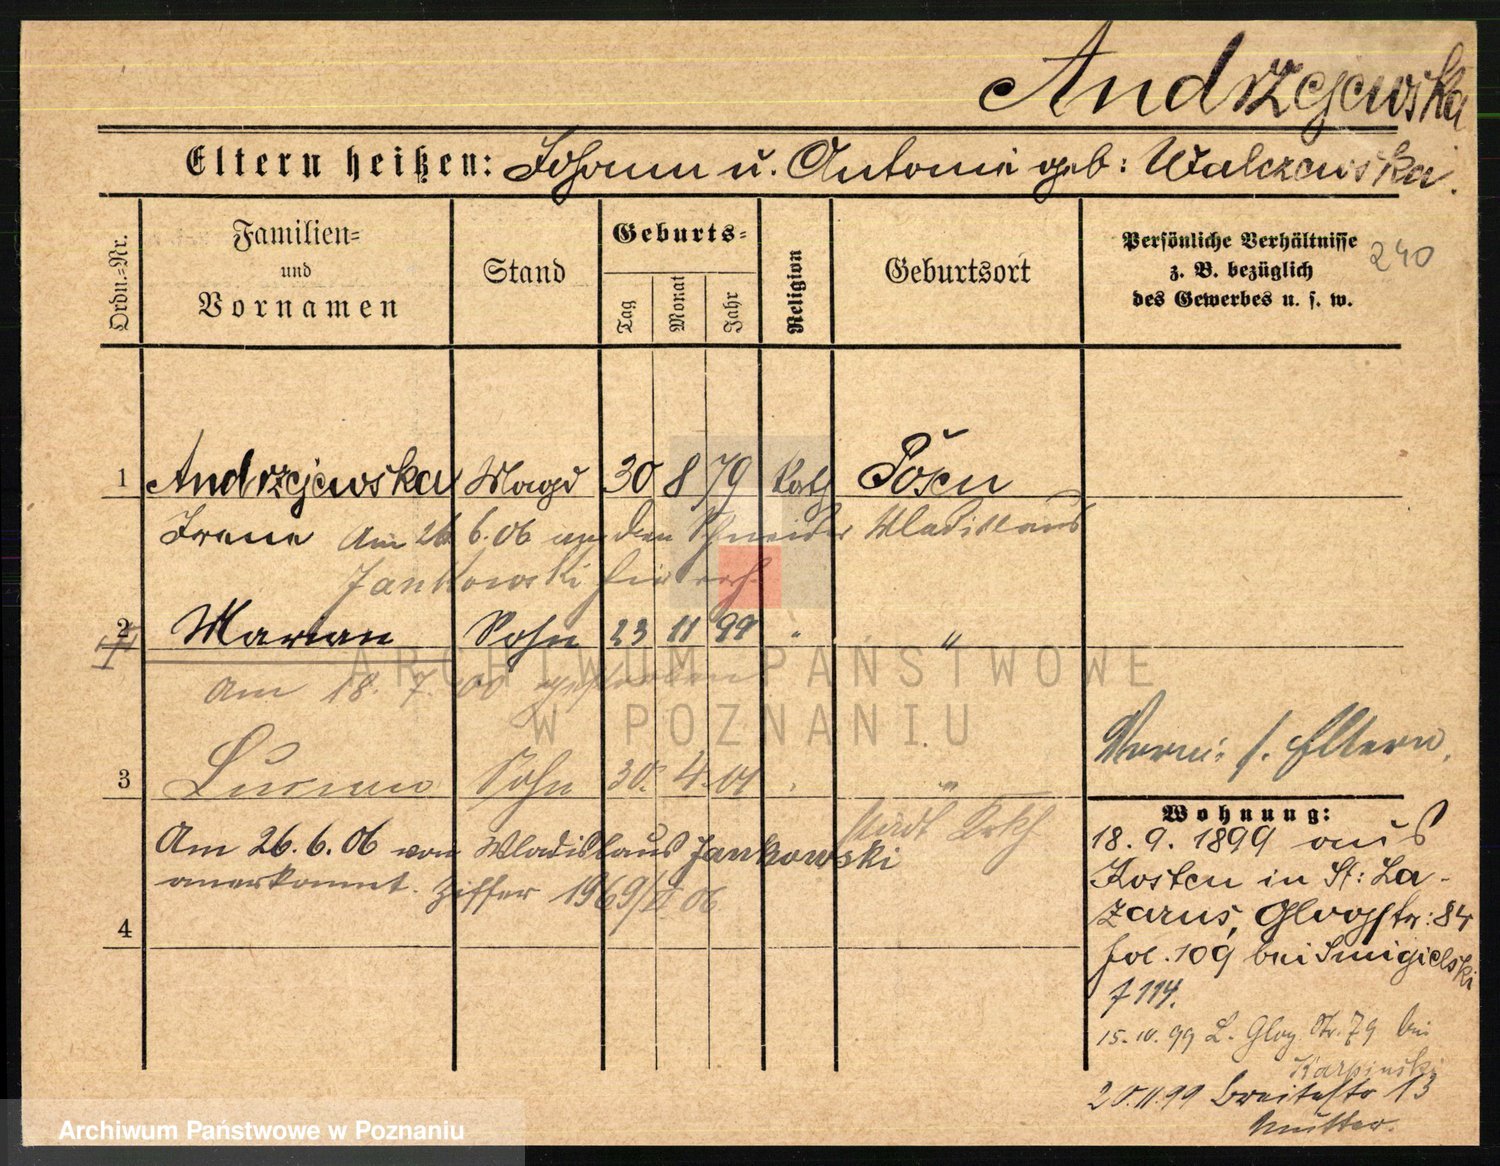 Andrzejewska
Eltern heißen: Johann u. Antonie geb: Walczewska.
Ordn.=Nr.
Familien=
und
Vornamen
Stand
Geburts=
Tag
Monat
Jahr
Religion
Geburtsort
Persönliche Verhältnisse
z. B. bezüglich
des Gewerbes u. s. w.
240
1 Andrzejewska Magd 30 8 79 Kath Posen
Irene Am 26.6.06 an den Schneider Wladislaus
Jankowski
2 Marian Sohn 23 11 99 " "
Am 18.7.00 gestorben
3 Lucian Sohn 30. 4. 01 " "
Stadt Krkh
Am 26.6.06 von Wladislaus Jankowski
anerkannt. Ziffer 1969/ 06
4
Verm: f. Eltern.
Wohnung:
18.9.1899 aus
Kosten in St: La-
zarus, Glogstr: 84
fol. 109 bei Smigielski
f 114.
15.10.99 L. Glog Str. 79 bei
Karpinski
20.11.99 Breitestr 13
Mutter.
ARCHIWUM PAŃSTWOWE
W POZNANIU
Archiwum Państwowe w Poznaniu